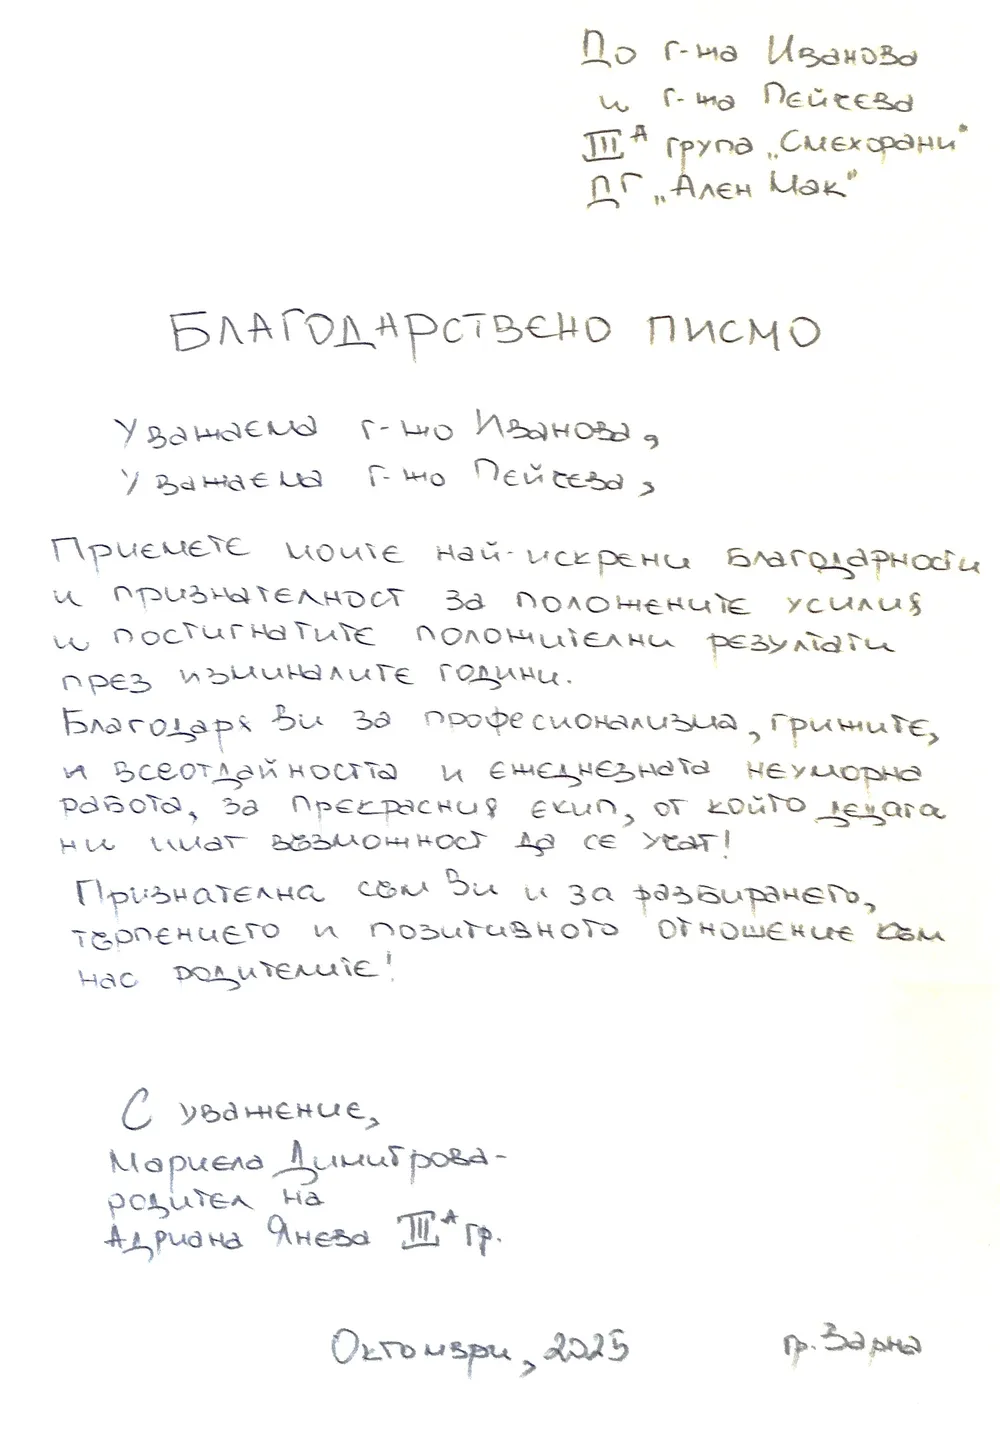 До г-жа Иванова
и г-жа Пейчева
III А група „Смехорани“
ДГ „Ален Мак“
БЛАГОДАРСТВЕНО ПИСМО
Уважаема г-жо Иванова,
Уважаема г-жо Пейчева,
Приемете моите най-искрени благодарности
и признателност за положените усилия
и постигнатите положителни резултати
през изминалите години.
Благодаря Ви за професионализма, грижите,
и всеотдайността и ежедневната неуморна
работа, за прекрасния екип, от който децата
ни имат възможност да се учат!
Признателна съм Ви и за разбирането,
търпението и позитивното отношение към
нас родителите!
С уважение,
Мариела Димитрова-
родител на
Адриана Янева III А гр.
Октомври, 2025 гр. Варна